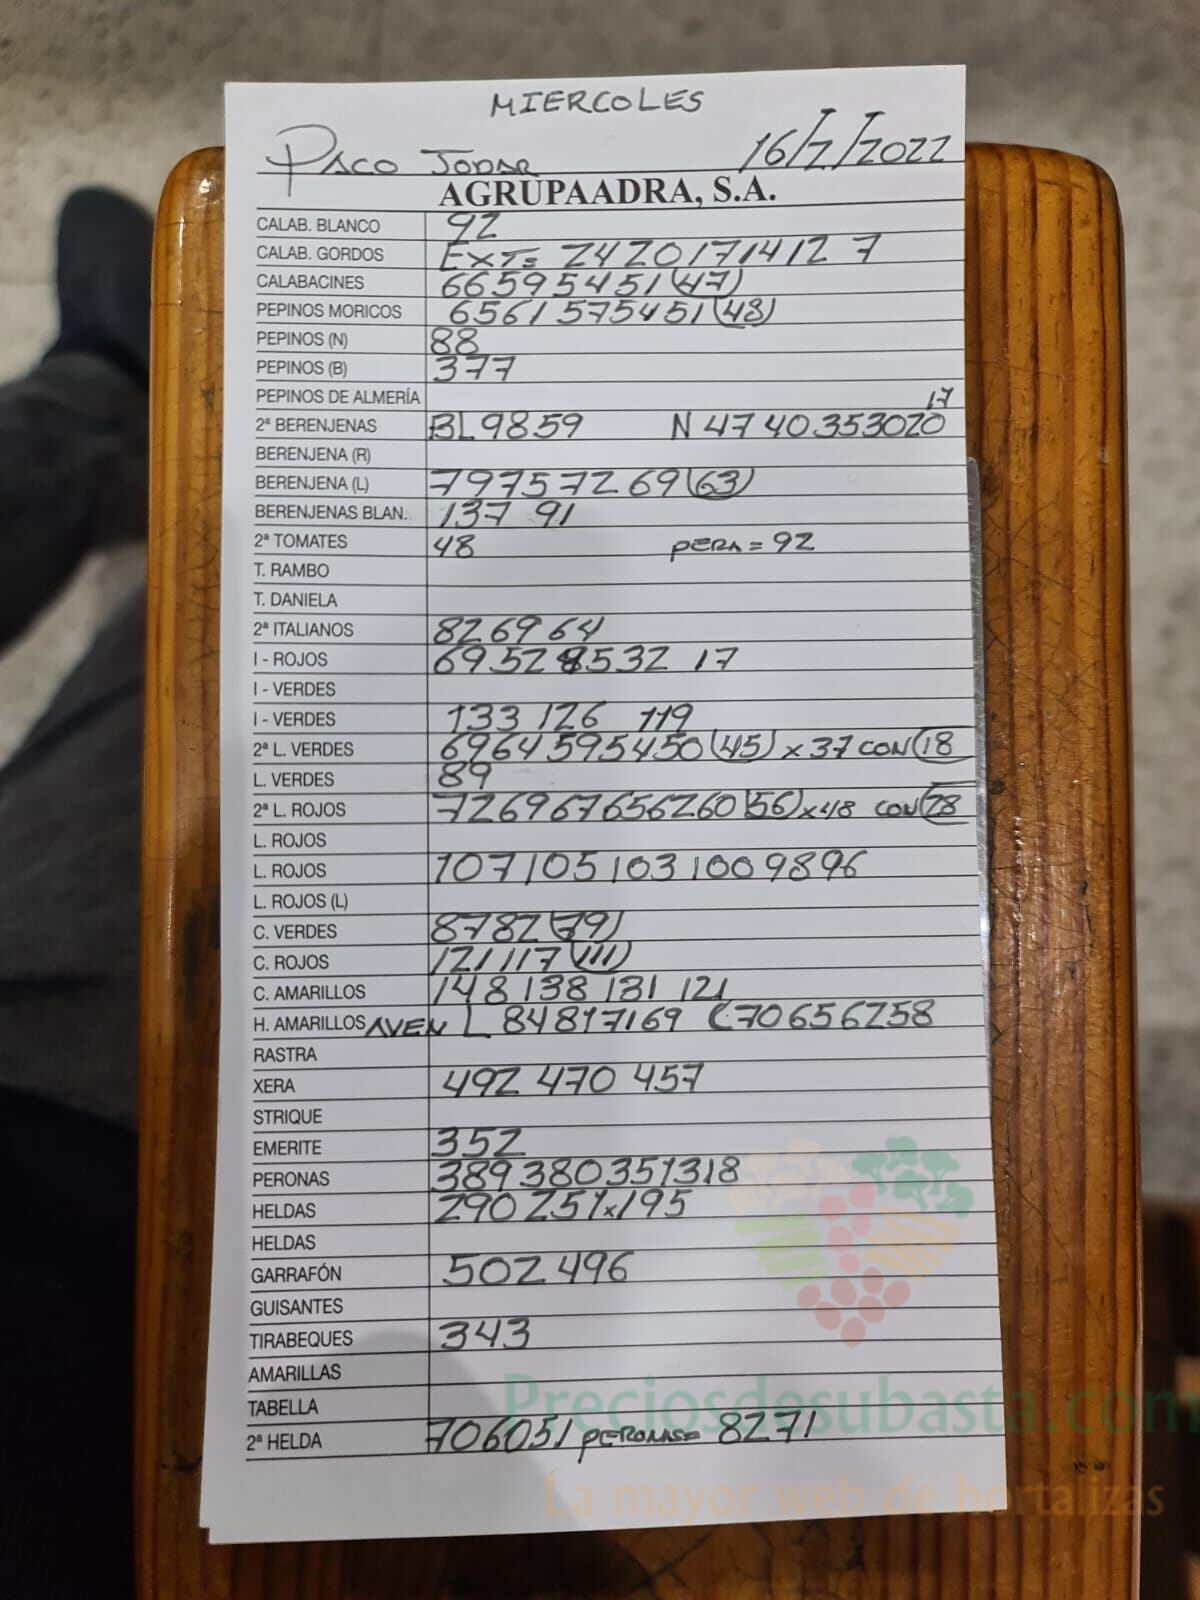 MIERCOLES
PACO JODAR 16/2/2022
AGRUPAADRA, S.A.
CALAB. BLANCO 92
CALAB. GORDOS EXT= 24 20 17 14 12 7
CALABACINES 66 59 54 51 (47)
PEPINOS MORICOS 65 61 57 54 51 (48)
PEPINOS (N) 88
PEPINOS (B) 377
PEPINOS DE ALMERÍA
2ª BERENJENAS BL 98 59 N 47 40 35 30 20 17
BERENJENA (R)
BERENJENA (L) 79 75 72 69 (63)
BERENJENAS BLAN. 137 91
2ª TOMATES 48 PERA = 92
T. RAMBO
T. DANIELA
2ª ITALIANOS 82 69 64
I - ROJOS 69 52 45 32 17
I - VERDES
I - VERDES 133 126 119
2ª L. VERDES 69 64 59 54 50 (45) x 37 CON (18
L. VERDES 89
2ª L. ROJOS 72 69 67 65 62 60 (56) x 48 CON (28
L. ROJOS
L. ROJOS 107 105 103 100 98 96
L. ROJOS (L)
C. VERDES 87 82 (79)
C. ROJOS 121 117 (111)
C. AMARILLOS 148 138 131 121
H. AMARILLOS AVEN L 84 81 71 69 C 70 65 62 58
RASTRA
XERA 492 470 457
STRIQUE
EMERITE 352
PERONAS 389 380 351 318
HELDAS 290 251 x 195
HELDAS
GARRAFÓN 502 496
GUISANTES
TIRABEQUES 343
AMARILLAS
TABELLA
2ª HELDA 70 60 51 PERONAS= 82 71
Preciosdesubasta.com
La mayor web de hortalizas